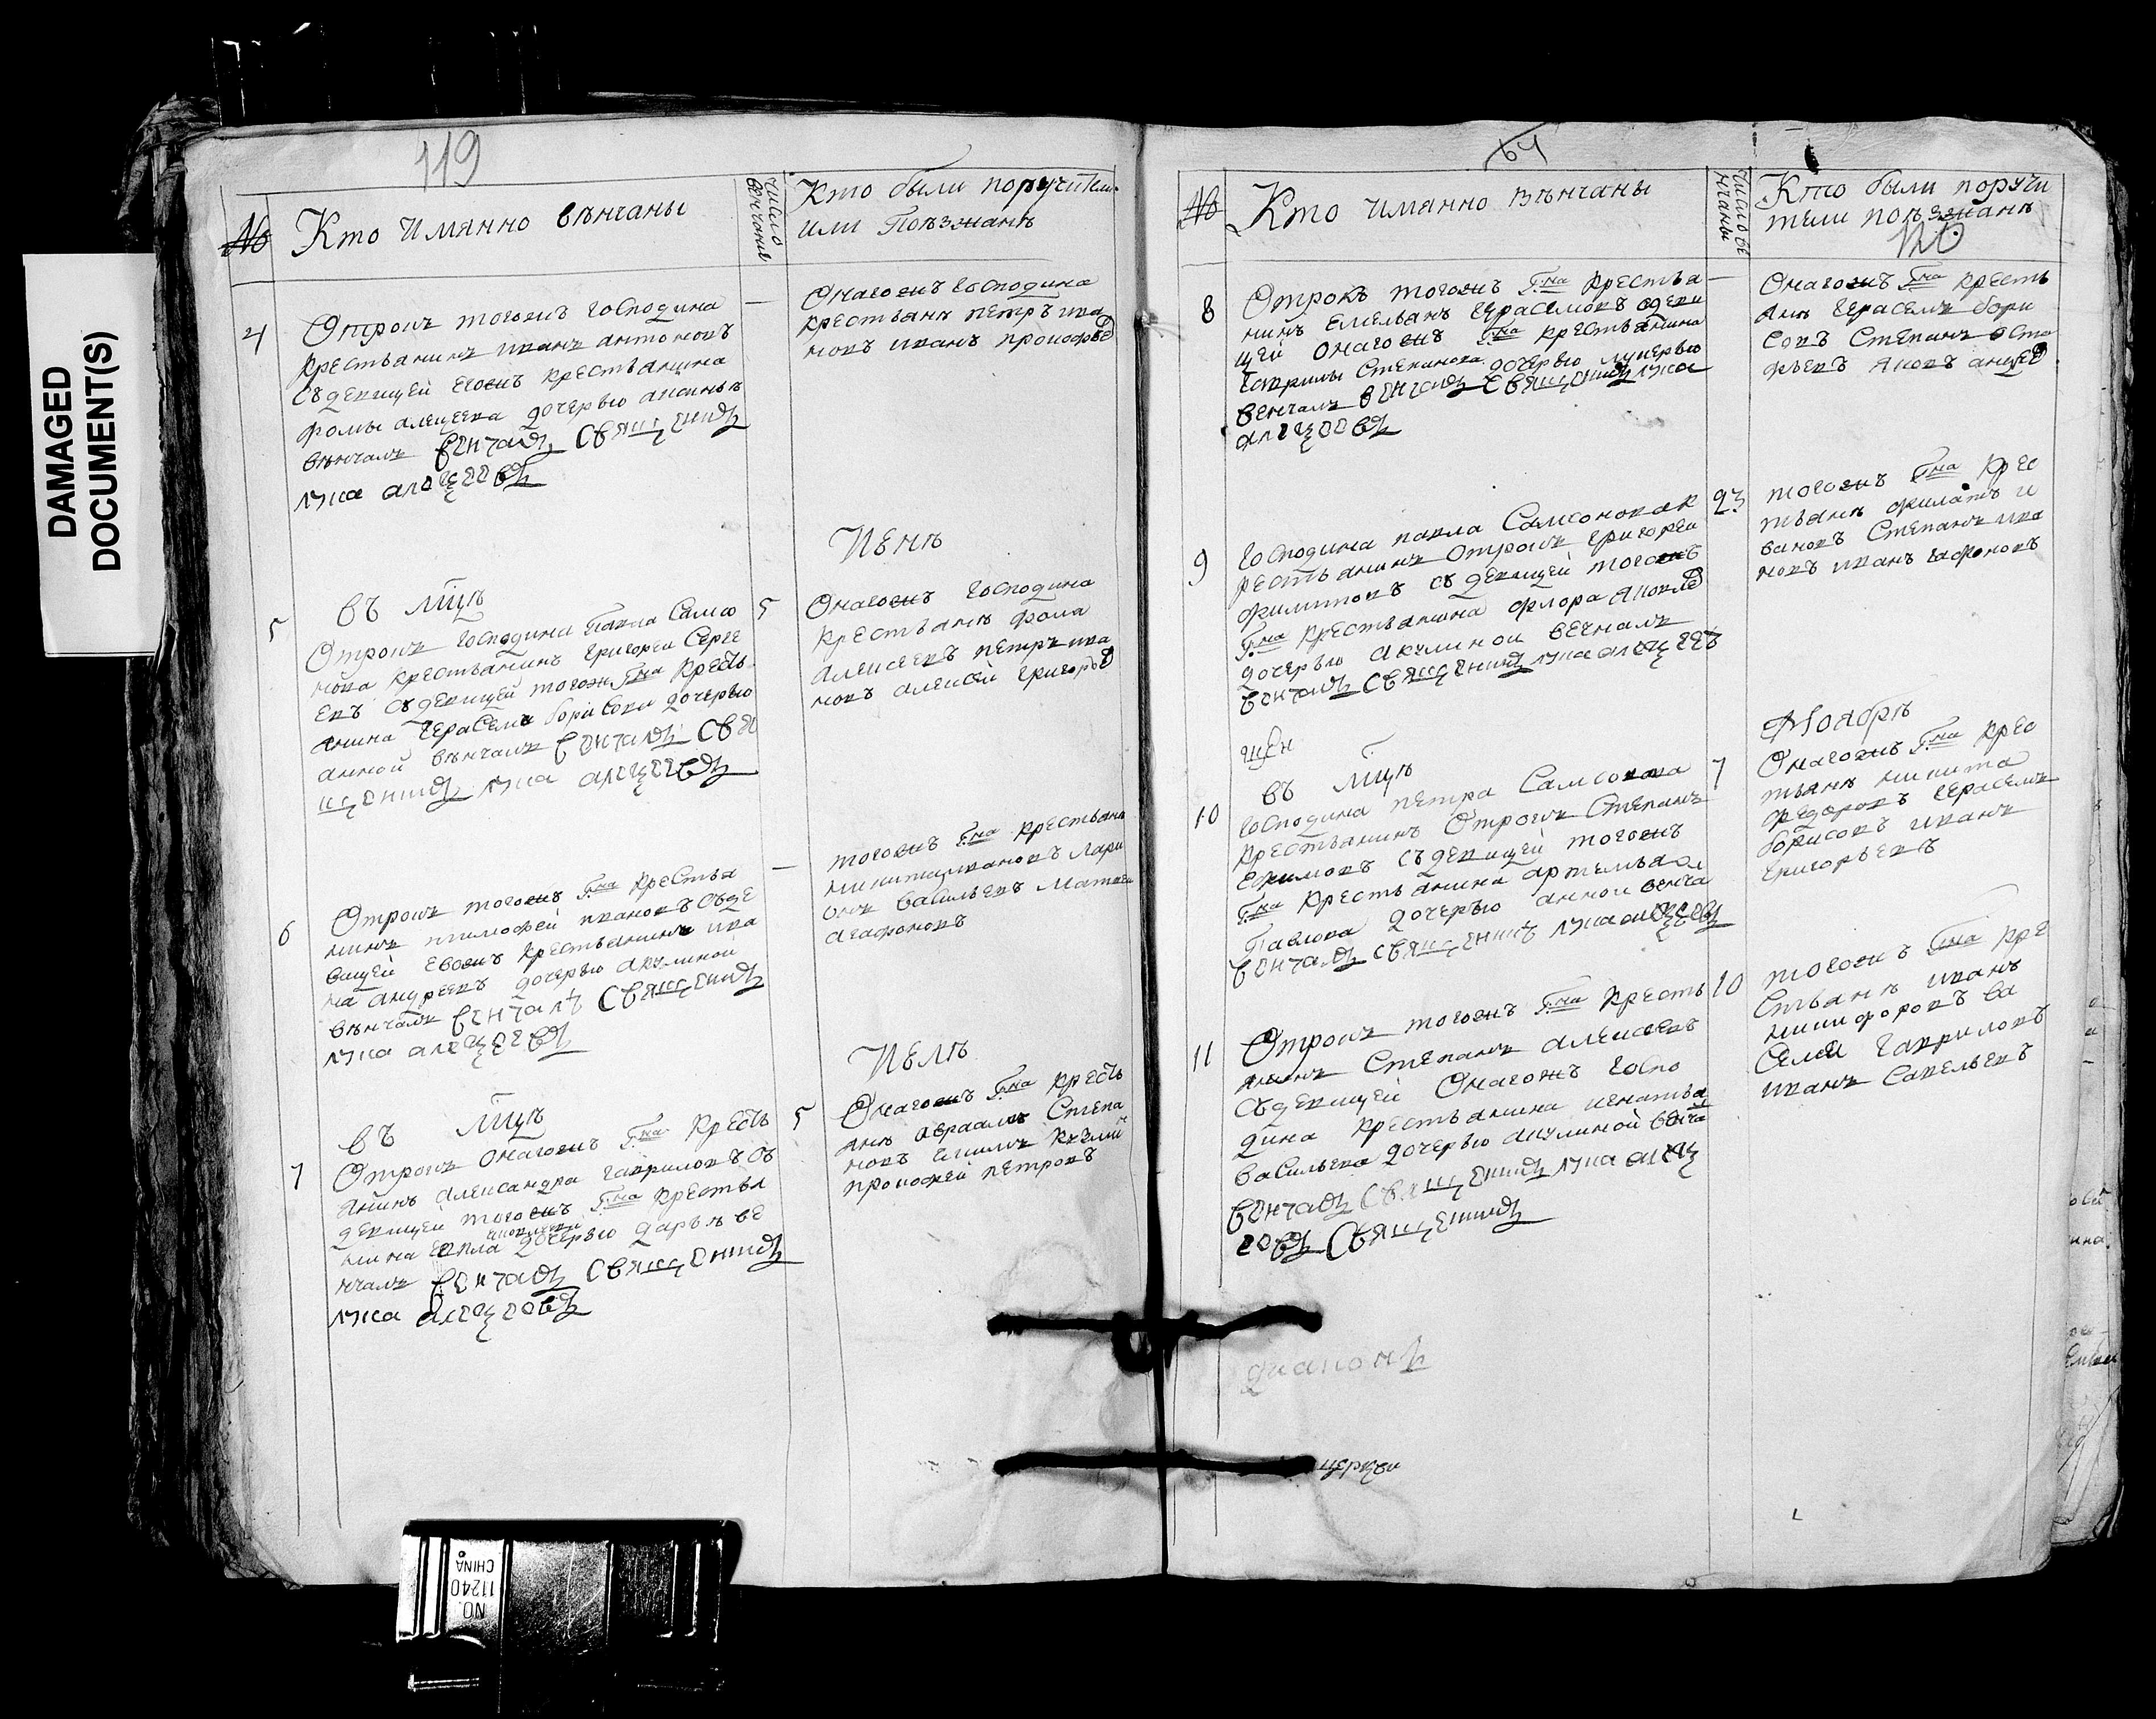 DAMAGED
DOCUMENT(S)
119
№
Кто имянно вѣнчаны
число венчания
Кто были поручители
или Поѣзжанѣ
4
Отрокъ тогожъ господина
крестьянинъ иванъ антоновъ
съ девицей егожъ крестьянина
фомы дочерью
вѣнчалъ венчалъ священникъ
лука алексеевъ
—
Онагожъ господина
крестьянѣ петръ ива
новъ иванъ прокофье
Июнѣ
въ мцѣ
5
Отрокъ господина Павла Самсо
нова крестьянинъ григорей Серге
евъ съ девицей тогожъ Гна кресть
янина герасема борисова дочерью
анной вѣнчалъ венчалъ свя
щенникъ лука алексеевъ
5
Онагожъ господина
крестьянѣ фома
алексеевъ петръ ива
новъ алексей григорье
6
Отрокъ тогожъ Гна крестья
нинъ тимофей ивановъ съ де
вицей евожъ крестьянинъ ива
на андреевъ дочерью акулиной
вѣнчалъ венчалъ священникъ
лука алексеевъ
—
тогожъ Гна крестьянѣ
никита ивановъ лари
онъ васильевъ матвеи
агафоновъ
Июлѣ
въ мцѣ
7
Отрокъ онагожъ Гна кресть
янинъ александра гавриловъ съ
девицей тогожъ Гна крестья
нина дочерью дарьѣ ве
нчалъ венчалъ священникъ
лука алексеевъ
5
Онагожъ Гна кресть
янѣ авраамъ Степа
новъ
прокофей петровъ
64
№
Кто имянно вѣнчаны
число венчаны
Кто были поручи
тели поѣзжанѣ
120
8
Отрокъ тогожъ Гна крестья
нинъ емельянъ герасемовъ с деви
цей онагожъ Гна крестьянина
гаврилы Степанова дочерью лукерью
венчалъ венчалъ священникъ лука
алексеевъ
—
Онагожъ Гна кресть
янѣ герасемъ бори
совъ Степанъ
яковъ
9
господина павла Самсонова к
рестьянинъ отрокъ григореи
филиповъ съ девицей тогожъ
Гна крестьянина флора яковле
дочерью акулиной венчалъ
венчалъ священникъ лука алексеевъ
23
тогожъ Гна крес
тьянѣ филатъ и
вановъ Степанъ ива
новъ иванъ гафоновъ
Ноябрѣ
въ мцѣ
10
господина петра Самсонова
крестьянинъ Отрокъ Степанъ
ефимовъ съ девицей тогожъ
Гна крестьянина артемья
Павлова дочерью анной венча
венчалъ священникъ лука алексеевъ
7
Онагожъ Гна крес
тьянѣ никита
федоровъ герасемъ
борисовъ иванъ
григорьевъ
11
Отрокъ тогожъ Гна кресть
янинъ Степанъ алексеевъ
съ девицей Онагожъ госпо
дина крестьянина игнатья
васильева дочерью акулиной венча
венчалъ священникъ лука алек
севъ священникъ
10
тогожъ Гна кре
стьянѣ иванъ
никифоровъ ва
силей гавриловъ
иванъ савельевъ
диаконъ
церкви
NO.
11240
CHINA